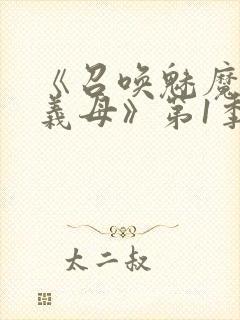 《召唤魅魔
義母》第1季
太二叔